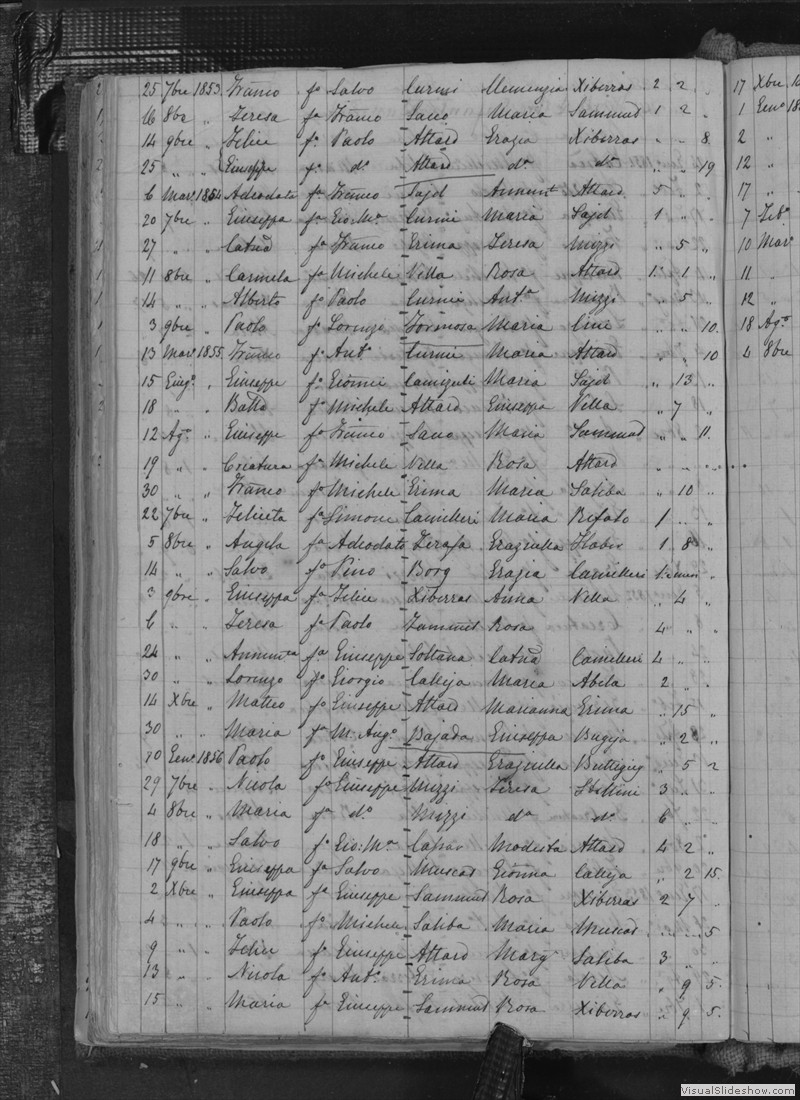 25 7bre 1853 Franco fo Salvo Curmi Clemenzia Xiberras 2 2 ..
16 8bre " Teresa fa Franco Sano Maria Sammut 1 2 "
14 9bre " Felice fo Paolo Attard Grazia Xiberras " " 8
25 " " Giuseppe fo do Attard da da " " 19
6 Marzo 1854 Adeodato fo Franco Said Annunta Attard 5 " "
20 7bre " Giuseppa fa Gio: Ma Curmi Maria Said 1 " "
27 " " Catna fa Franco Grima Teresa Mizzi " 5 "
11 8bre " Carmela fa Michele Vella Rosa Attard 1 1 "
14 " " Alberto fo Paolo Curmi Anta Mizzi " 5 "
3 9bre " Paolo fo Lorenzo Formosa Maria Cini " " 10
13 Marzo 1855 Franco fo Anto Curmi Maria Attard " " 10
15 Giugo " Giuseppe fo Gionni Maria Said " 13 "
18 " " Batta fo Michele Attard Giuseppa Vella " 7 "
12 Ago " Giuseppe fo Franco Sano Maria Sammut " " 11
19 " " Creatura fa Michele Vella Rosa Attard " " ...
30 " " Franco fo Michele Grima Maria Saliba " 10 "
22 7bre " Feliceta fa Simone Camilleri Maria Refalo 1 .. "
5 8bre " Angela fa Adeodato Zerafa Graziulla 1 8 "
14 " " Salvo fo Pino Borg Grazia Camilleri
3 9bre " Giuseppa fa Felice Xiberras Anna Vella " 4 "
6 " " Teresa fa Paolo Zammit Rosa 4 " "
24 " " Annunta fa Giuseppe Soltana Catna Camilleri 4 " "
30 " " Lorenzo fo Giorgio Calleja Maria Abela 2 " "
14 Xbre " Matteo fo Giuseppe Attard Marianna Grima " 15 "
30 " " Maria fa M. Ango Bajada Giuseppa Bugeja " 2 "
10 Geno 1856 Paolo fo Giuseppe Attard Graziulla Buttegieg " 5 2
29 7bre " Nicola fo Giuseppe Mizzi Teresa Stellini 3 " "
4 8bre " Maria fa do Mizzi da da 6 " "
18 " " Salvo fo Gio: Ma Modesta Attard 4 2 "
17 9bre " Giuseppa fa Salvo Muscat Gionna Calleja " 2 15
2 Xbre " Giuseppa fa Giuseppe Sammut Rosa Xiberras 2 7 "
4 " " Paolo fo Michele Saliba Maria Muscat .. .. 5
9 " " Felice fo Giuseppe Attard Marga Saliba 3 " "
13 " " Nicola fo Anto Grima Rosa Vella " 9 5
15 " " Maria fa Giuseppe Sammut Rosa Xiberras " 9 5
17 Xbre
1 Geno
2 "
12 "
17 "
7 Febo
10 Marzo
11 "
12 "
18 Ago
4 8bre
VisualSlideshow.com